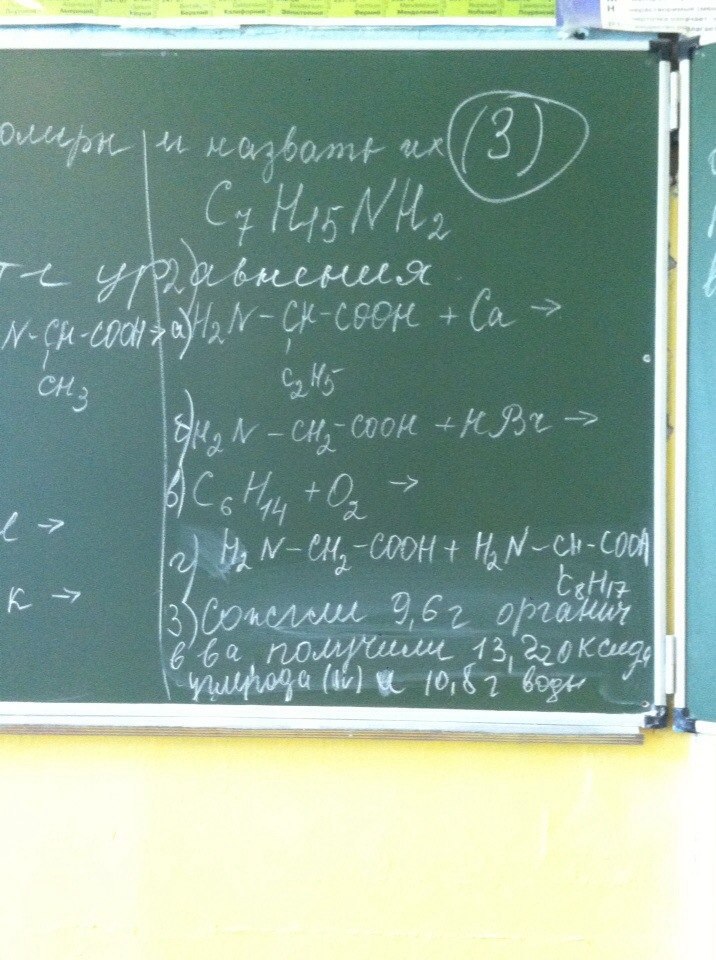 и назвать их (3)
C7H15NH2
уравнения
2)
N-CH-COOH→ а) H2N-CH-COOH + Ca →
CH3 C2H5
б) H2N-CH2-COOH + HBr →
в) C6H14 + O2 →
→
г) H2N-CH2-COOH + H2N-CH-COOH
C8H17
к →
3) Сожгли 9,6 г органич
в ва получили 13,2 г оксида
углерода (IV) и 10,8 г воды